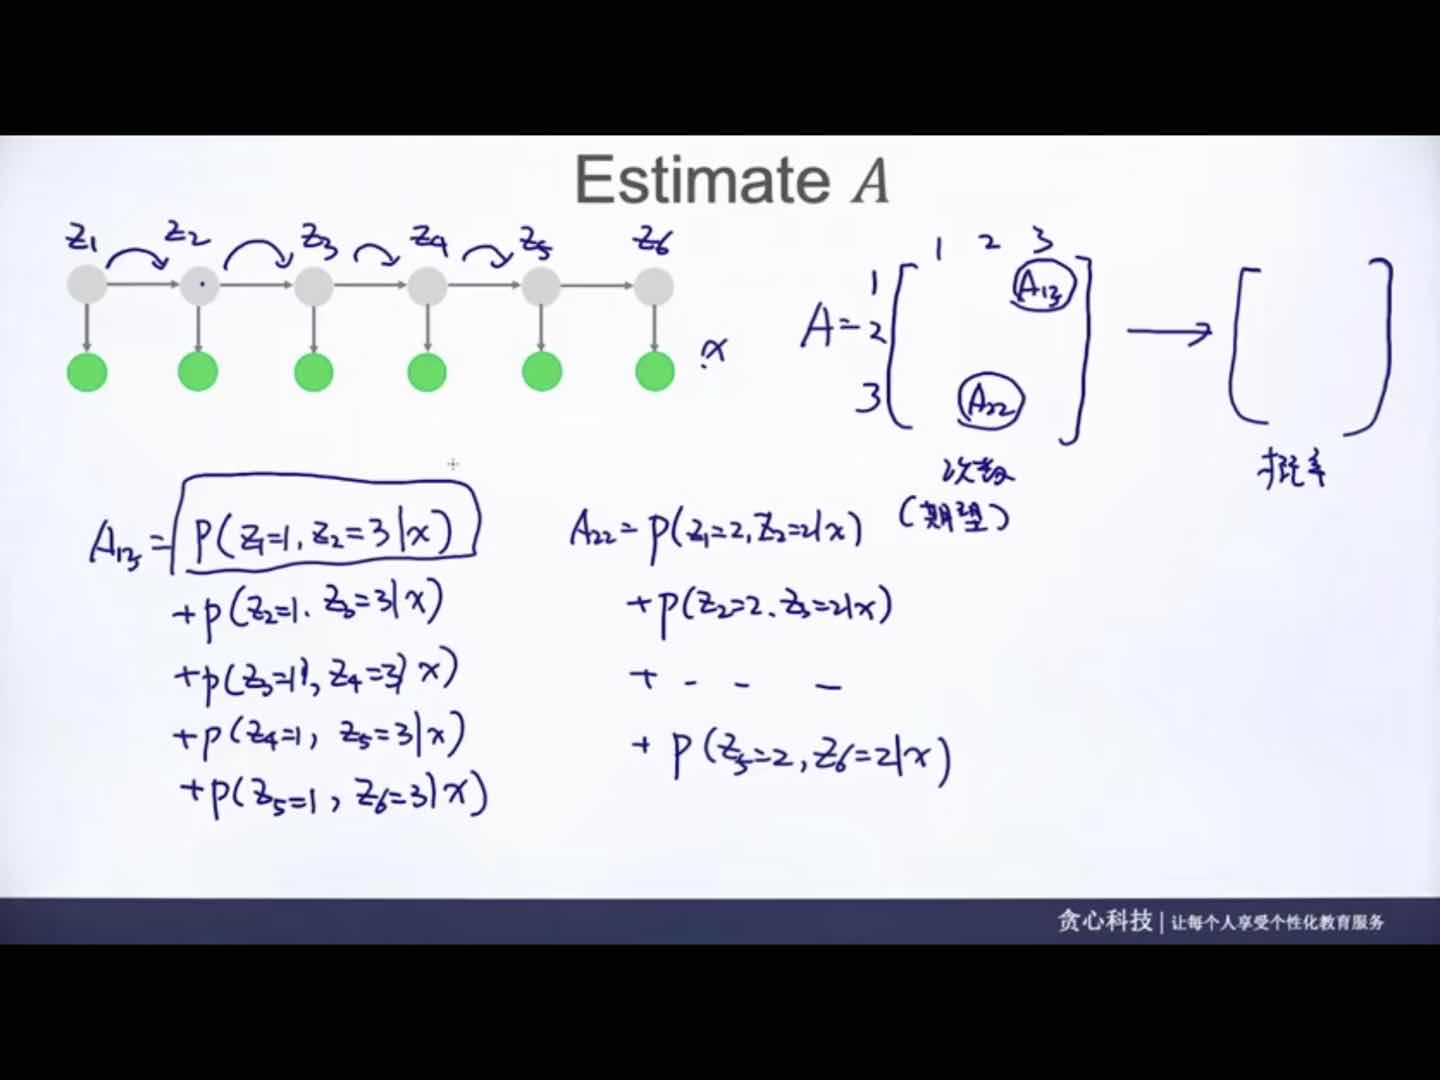 Estimate A
z1 z2 z3 z4 z5 z6
x
1 2 3
1
A= 2
3
A13
A22
次数
(期望)
概率
A13 = P(z1=1, z2=3|x)
+p(z2=1. z3=3|x)
+p(z3=1, z4=3|x)
+p(z4=1, z5=3|x)
+p(z5=1, z6=3|x)
A22 = p(z1=2, z2=2|x)
+p(z2=2. z3=2|x)
+ - - -
+ p(z5=2, z6=2|x)
贪心科技 | 让每个人享受个性化教育服务